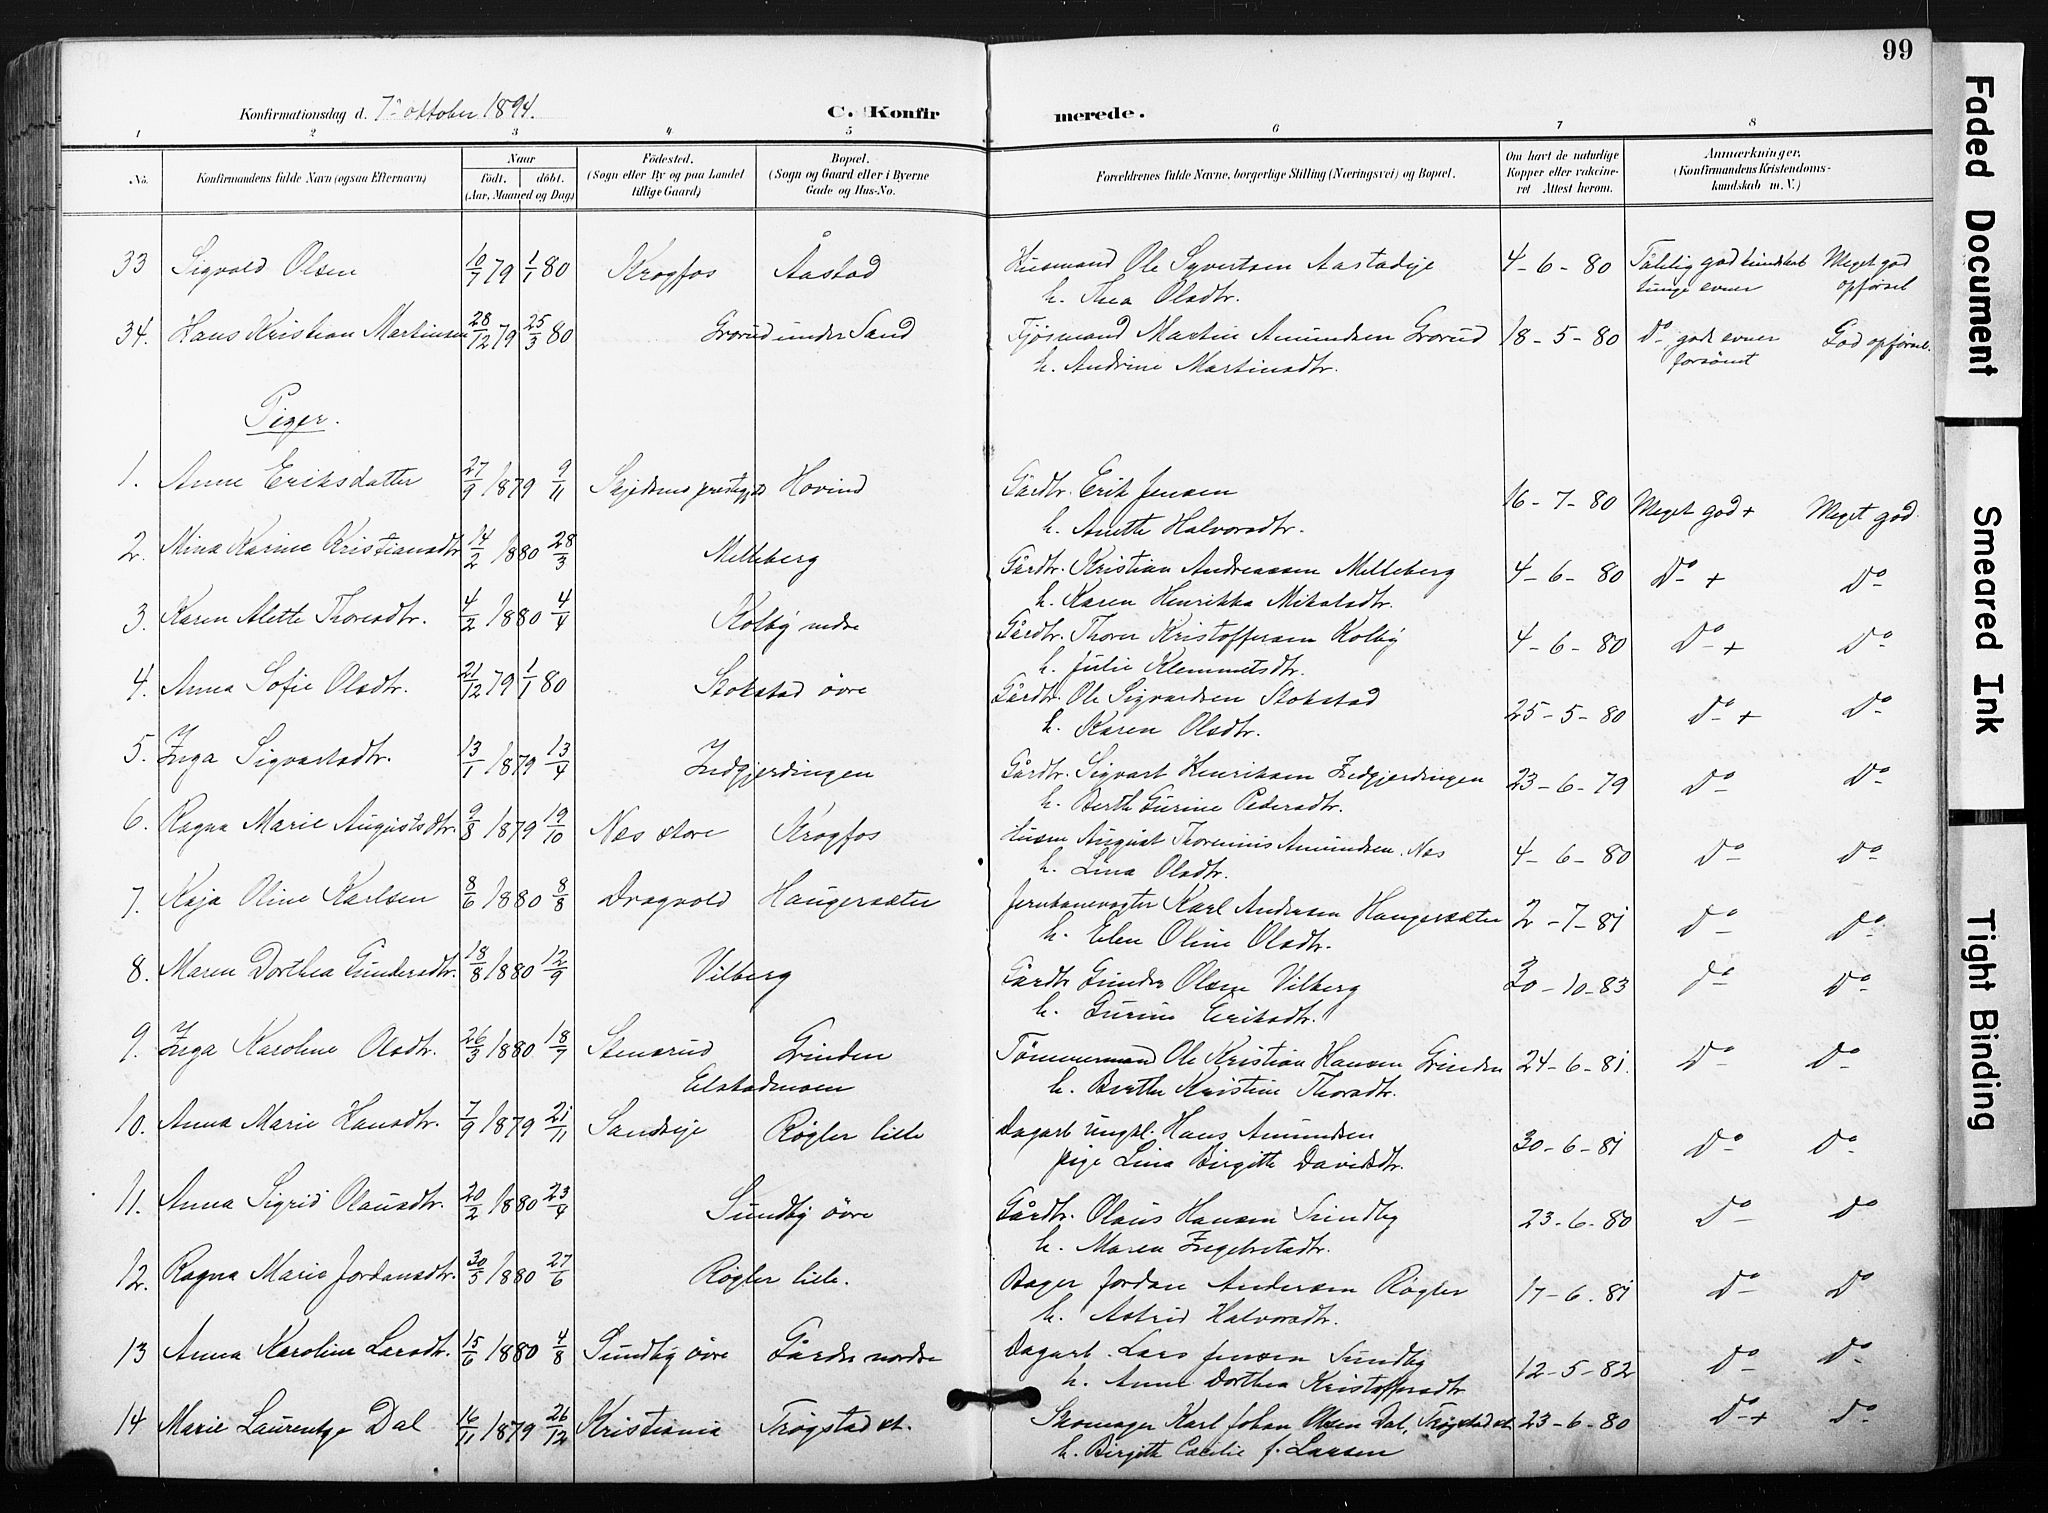 99
Konfirmationsdag d. 7de oktober 1894.
C. Konfirmerede.
1 2 3 4 5 6 7 8
No. Konfirmandens fulde Navn (ogsaa Efternavn) Naar født. døbt. (Aar, Maaned og Dag) Fødested. (Sogn eller By og paa Landet tillige Gaard) Bopæl. (Sogn og Gaard eller i Byerne Gade og Hus-No. Forældrenes fulde Navne, borgerlige Stilling (Næringsvei) og Bopæl. Om havt de naturlige Kopper eller vaccineret Attest herom. Anmærkninger, (Konfirmandens Kristendomskundskab m. V.)
33 Sigvald Olsen 10/7 79 1/1 80 Krogfos Åastad Husmand Ole Syvertsen Aastadeje 4-6-80 Tålelig god kundskab Meget god
h. Thea Olsdtr. tunge evner opførsel
34. Hans Kristian Martinsen 28/12 79 25/3 80 Grorud under Sand Fjøsmand Martin Amundsen Grorud 18-5-80 Do, gode evner God opførsel.
h. Andrine Martinsdtr. forsømt
Piger.
1. Anne Eriksdatter 27/9 1879 9/11 Skjedsmo prestegj. Hovind Gårdbr. Erik Jensen 16-7-80 Meget god + Meget god.
h. Anette Halvorsdtr.
2. Mina Karine Kristiansdtr 14/2 1880 28/3 Melleberg Gårdbr. Kristian Andreassen Melleberg 4-6-80 Do + Do
h. Karen Henrikka Mikalsdtr.
3. Karen Alette Thoresdtr. 4/2 1880 4/4 Kolby nedre Gårdbr. Thorer Kristoffersen Kolby 4-6-80 Do + Do
h. Julie Klemmetsdtr.
4. Anna Sofie Olsdtr. 21/12 79 1/1 80 Stokstad øvre Gårdbr. Ole Sigvardsen Stokstad 25-5-80 Do + Do
h. Karen Olsdtr.
5. Inga Sigvartsdtr. 13/1 1879 13/4 Indgjerdingen Gårdbr. Sigvart Henriksen Indgjerdingen 23-6-79 Do Do
h. Berth Gurine Pedersdtr.
6. Ragna Marie Augustsdtr. 9/8 1879 19/10 Nes store Krogfos Husm August Thorenius Amundsen. Nes 4-6-80 Do Do
h. Lina Olsdtr.
7. Kaja Oline Karlsen 8/6 1880 8/8 Dragvold Haugersæter Jernbanevogter Karl Andersen Haugersæter 2-7-81 Do Do
h. Elen Oline Olsdtr.
8. Maren Dorthea Gundersdtr. 18/8 1880 12/9 Vilberg Gårdbr Gunder Olsen Vilberg 30-10-83 Do Do
h. Gurine Eriksdtr.
9. Inga Karoline Olsdtr. 26/3 1880 18/7 Stensrud Grinden Tømmermand Ole Kristian Hansen Grinden 24-6-81. Do Do
Elstadmoen h. Berthe Kristine Thorsdtr.
10. Anna Marie Hansdtr. 7/9 1879 21/11 Sandseje Røgler lille Dagarb ungkl. Hans Amundsen 30-6-81 Do Do
pige Lina Birgitte Davidsdtr.
11. Anna Sigrid Olausdtr. 20/2 1880 23/4 Sundby øvre Gårdbr. Olaus Hansen Sundby 23-6-80 Do Do
h. Maren Ingebretsdtr.
12. Ragna Marie Jordansdtr. 30/5 1880 27/6 Røgler lille. Bager Jordan Andersen Røgler 17-6-81 Do Do
h. Astrid Halvorsdtr.
13 Anna Karoline Larsdtr. 15/6 1880 4/8 Sundby øvre Gårder nordre Dagarb. Lars Jensen Sundby 12-5-82 Do Do
h. Anne Dorthea Kristoffersdtr
14 Marie Laurentze Dal 16/11 1879 26/12 Kristiania Trøgstad st. Skomager Karl Johan Olsen Dal, Trøgstad st. 23-6-80 Do + Do
h. Birgitte Cæcilie f. Larsen
Faded Document
Smeared Ink
Tight Binding